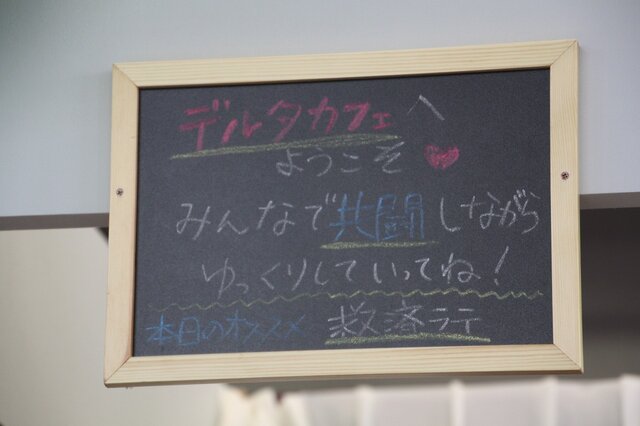 デルタカフェへ
ようこそ
みんなで共闘しながら
ゆっくりしていってね!
本日のオススメ 救済ラテ